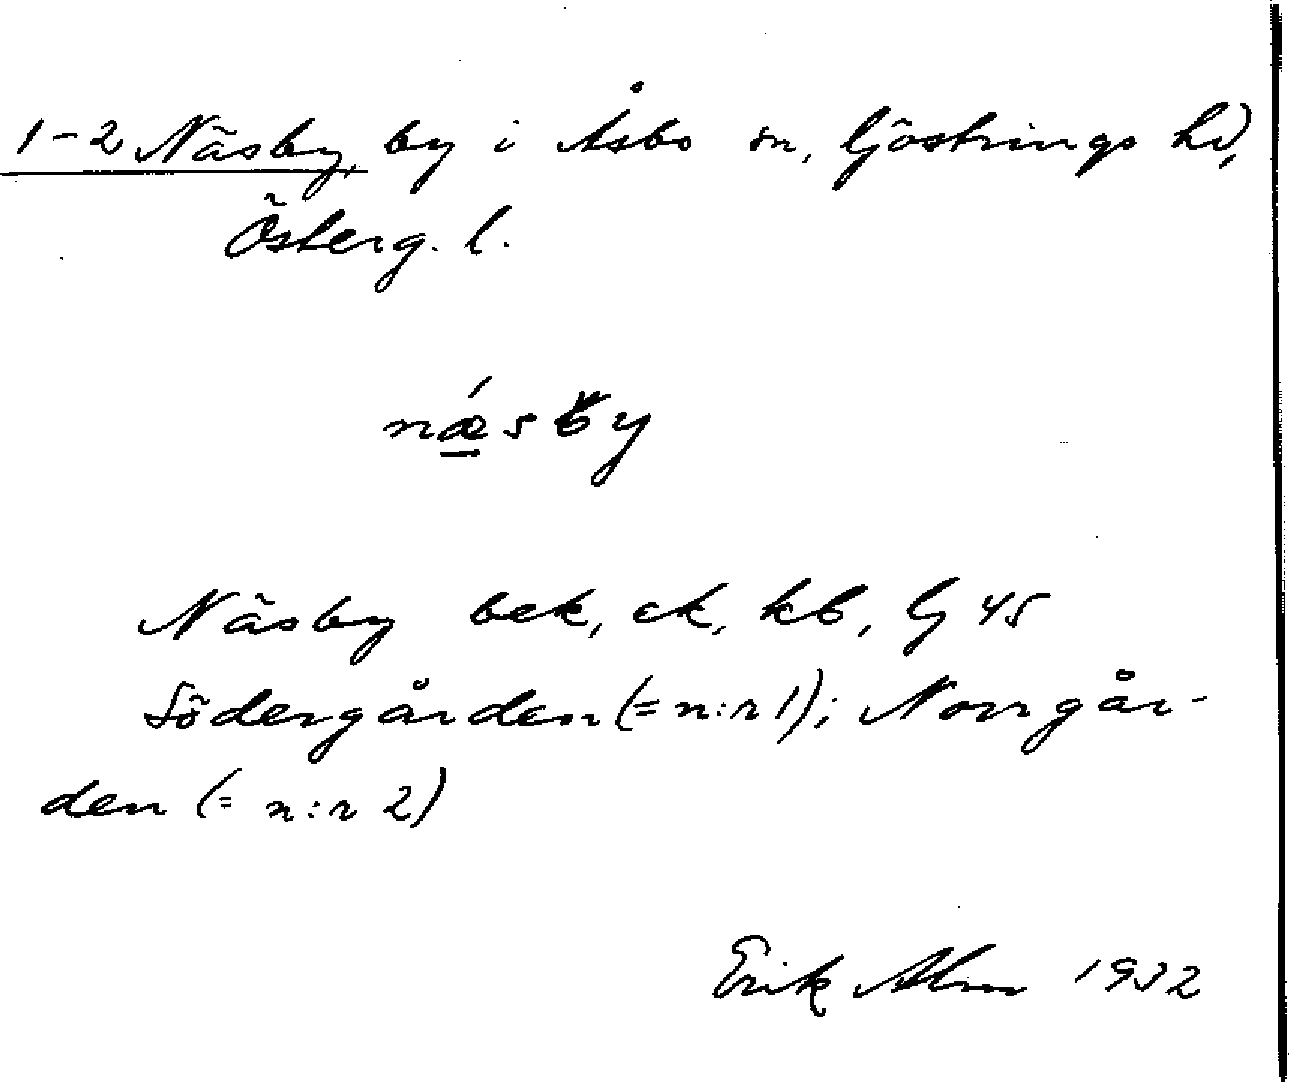 1-2 Näsby, by i Åsbo sn, Göstrings hd,
Österg. l.
nǽ̲sby
Näsby bek, ek, kb, lj 45
Södergården (= n:r 1); Norrgår-
den (= n:r 2)
Erik Alm 1932